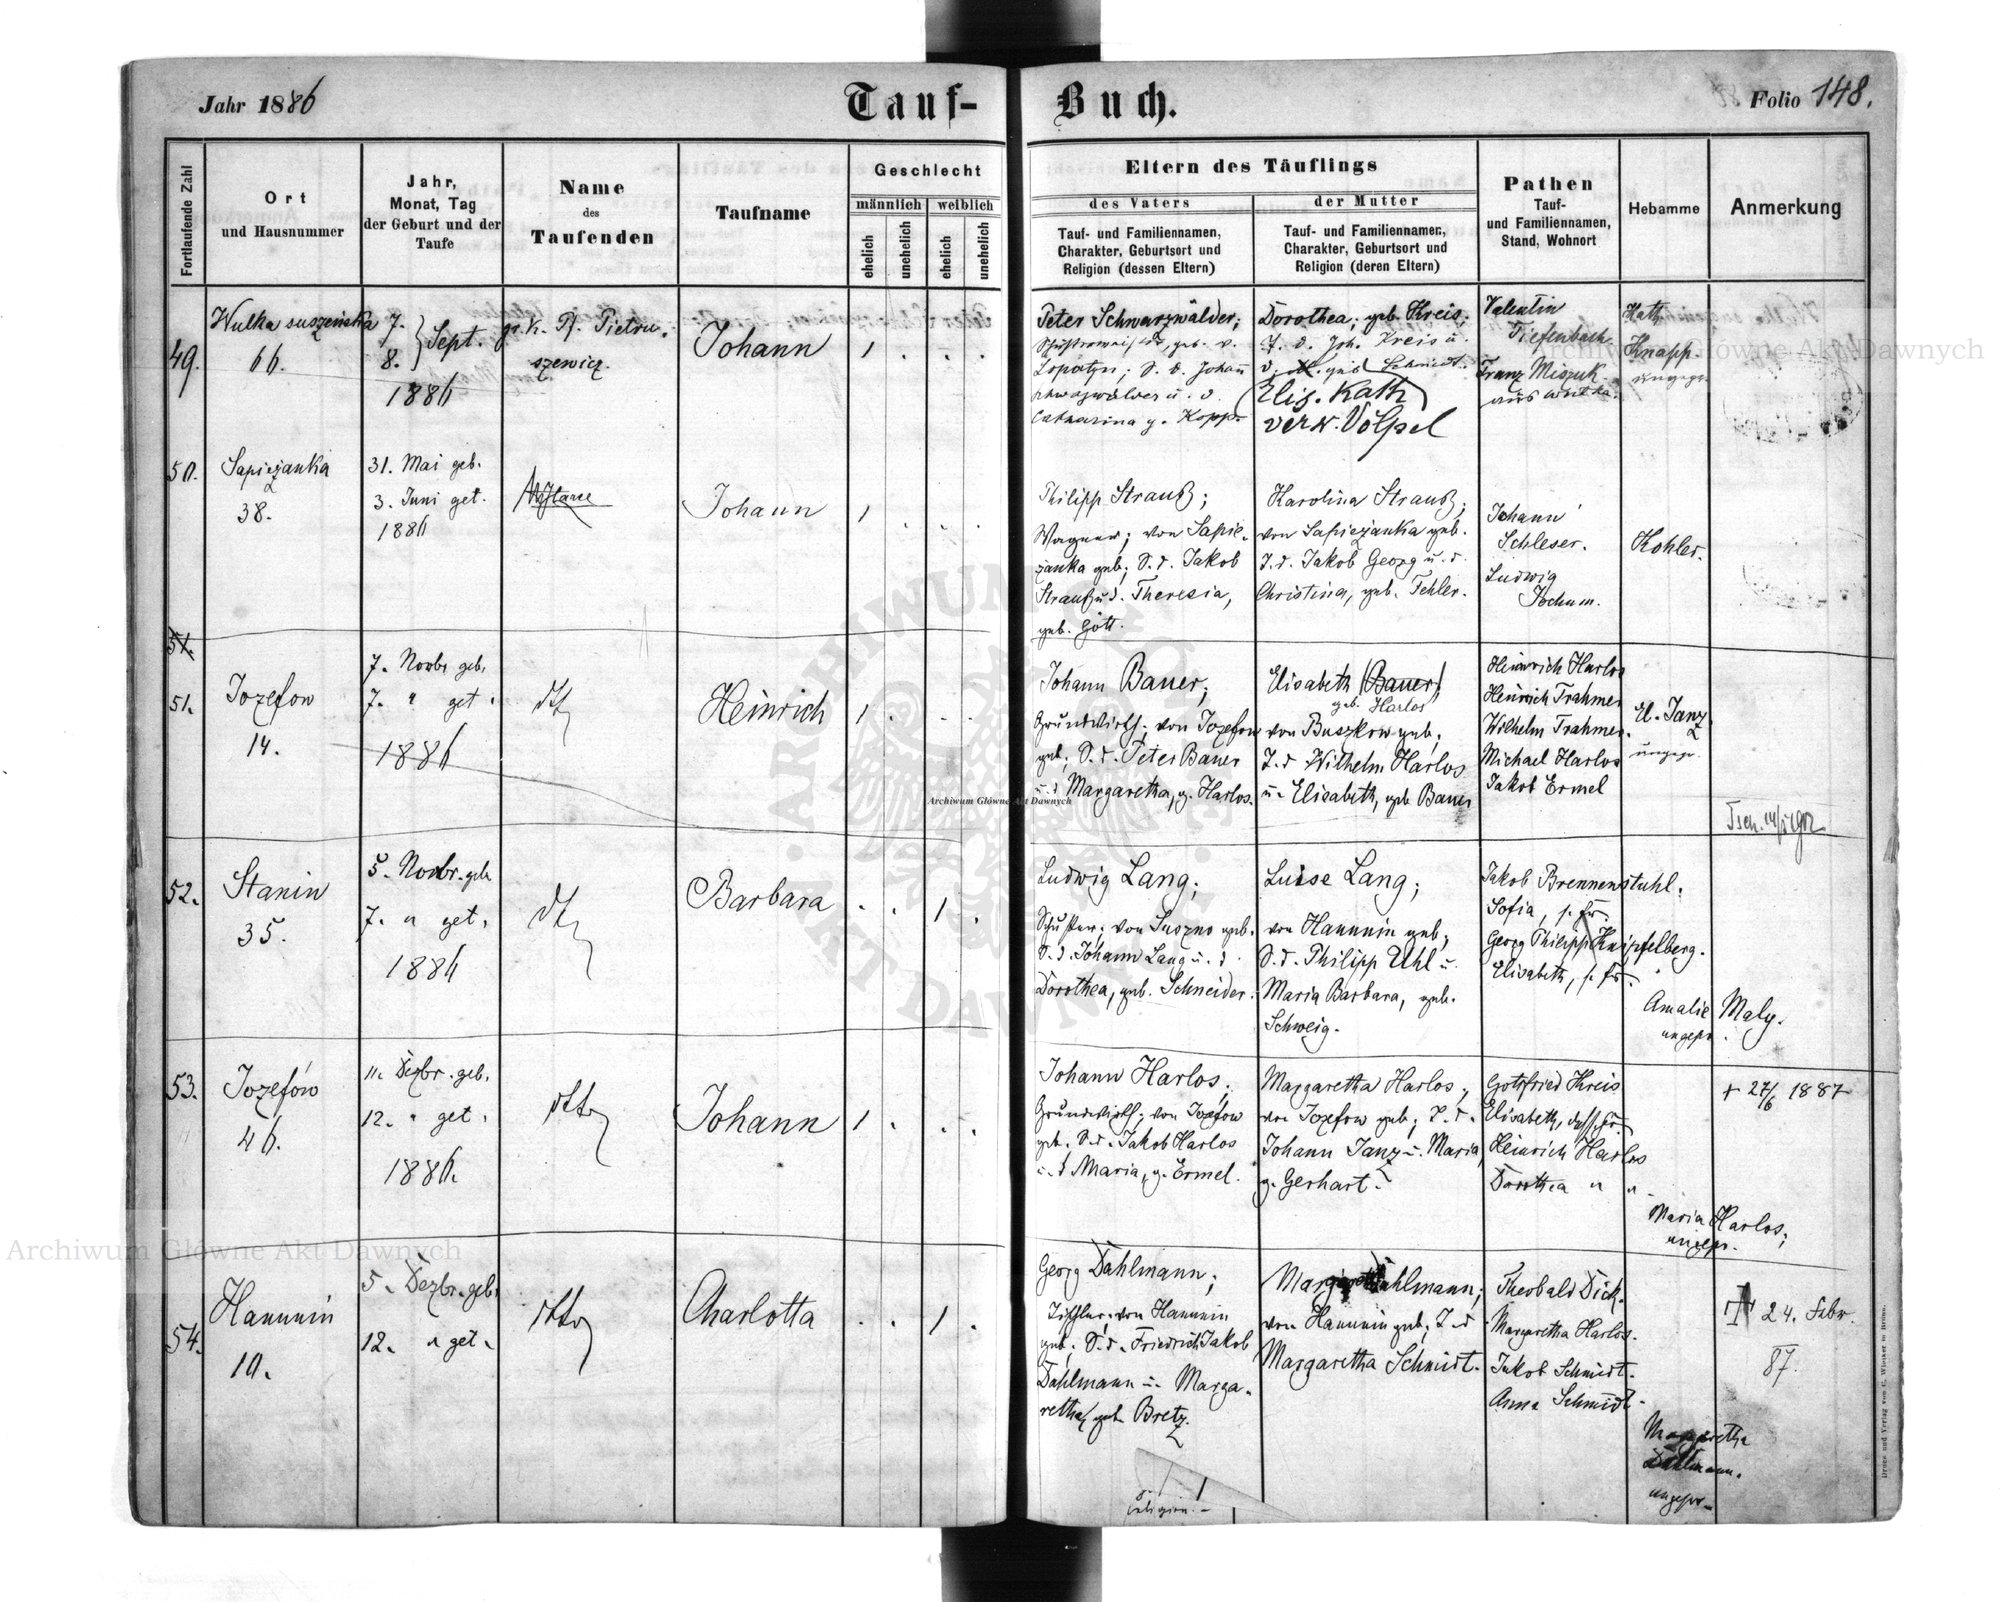 Jahr 1886
Tauf-
Buch.
Folio 148.
Fortlaufende Zahl
Ort
und Hausnummer
Jahr,
Monat, Tag
der Geburt und der
Taufe
Name
des
Taufenden
Taufname
Geschlecht
männlich
weiblich
ehelich
unehelich
ehelich
unehelich
Eltern des Täuflings
des Vaters
Tauf- und Familiennamen,
Charakter, Geburtsort und
Religion (dessen Eltern)
der Mutter
Tauf- und Familiennamen,
Charakter, Geburtsort und
Religion (deren Eltern)
Pathen
Tauf-
und Familiennamen,
Stand, Wohnort
Hebamme
Anmerkung
49.
Wulka suszeńska
66.
7.
8. } Sept.
1886
gr. k. Pf. Pietru-
szewicz.
Johann
1 . . .
Peter Schwarzwälder;
geb. v.
Lopatyn; S. d. Johann
Schwarzwälder u. d.
Catharina g. Kopp.
Dorothea; geb. Kreis;
T. d. Joh. Kreis u.
d. geb. Schmidt.
(Elis. Kath)
verw. Völpel
Valentin
Tiefenbach.
Franz Miszuk
aus Wulka.
Kath.
Knapp
ungepr.
50.
Sapieżanka
38.
31. Mai geb.
3. Juni get.
1886
Johann
1 . . .
Philipp Strauß;
Wagner; von Sapie-
żanka geb; S. d. Jakob
Strauß u. d. Theresia,
geb. Gött.
Karolina Strauß;
von Sapieżanka geb.
T. d. Jakob Georg u. d.
Christina, geb. Fehler.
Johann
Schleser.
Ludwig
Jochum.
Kohler.
51.
51.
Jozefow
14.
7. Novbr geb.
7. " get.
1886
dto
Heinrich
1 . . .
Johann Bauer;
Grundwirth; von Jozefow
geb; S. d. Peter Bauer
u. d. Margaretha, g. Harlos.
Elisabeth (Bauer)
geb. Harlos
von Buszkow geb;
T. d. Wilhelm Harlos
u. Elisabeth, geb Bauer
Heinrich Harlos
Heinrich Trahmer
Wilhelm Trahmer.
Michael Harlos
Jakob Ermel
El. Janz
ungepr.
52.
Stanin
35.
5. Novbr. geb.
7. " get.
1886
dto
Barbara
. . 1 .
Ludwig Lang;
Schuster; von Suszno geb.
S. d. Johann Lang u. d.
Dorothea, geb. Schneider.
Luise Lang;
von Hanunin geb;
S. d. Philipp Uhl u.
Maria Barbara, geb.
Schweig.
Jakob Brennenstuhl.
Sofia, s. Fr.
Georg Philipp Knipfelberg.
Elisabeth, s. Fr.
Amalie Maly.
ungepr.
53.
Jozefów
46.
11. Dezbr. geb.
12. " get.
1886.
dtto
Johann
1 . . .
Johann Harlos;
Grundwirth; von Jozefow
geb. S. d. Jakob Harlos
u. d. Maria, g. Ermel.
Margaretha Harlos;
von Jozefow geb; T. d.
Johann Janz u. Maria,
g. Gerhart.
Gottfried Kreis
Elisabeth, dess. Fr.
Heinrich Harlos
Dorothea " "
Maria Harlos;
ungepr.
+ 27/6 1887
54.
Hanunin
10.
5. Dezbr. geb.
12. " get.
dtto
Charlotta
. . 1 .
Georg Dahlmann;
Tischler; von Hanunin
geb; S. d. Friedrich Jakob
Dahlmann u. Marga-
retha, geb Bretz.
Dahlmann;
von Hanunin geb; T. d.
Margaretha Schmidt.
Theobald Dick.
Margaretha Harlos.
Jakob Schmidt.
Anna Schmidt.
Margaretha
Dahlmann.
ungepr.
24. Febr.
87.
religion.
Druck und Verlag von C. Winiker in Brünn.
Archiwum Główne Akt Dawnych
Archiwum Główne Akt Dawnych
Archiwum Główne Akt Dawnych
ARCHIWUM GŁÓWNE AKT DAWNYCH